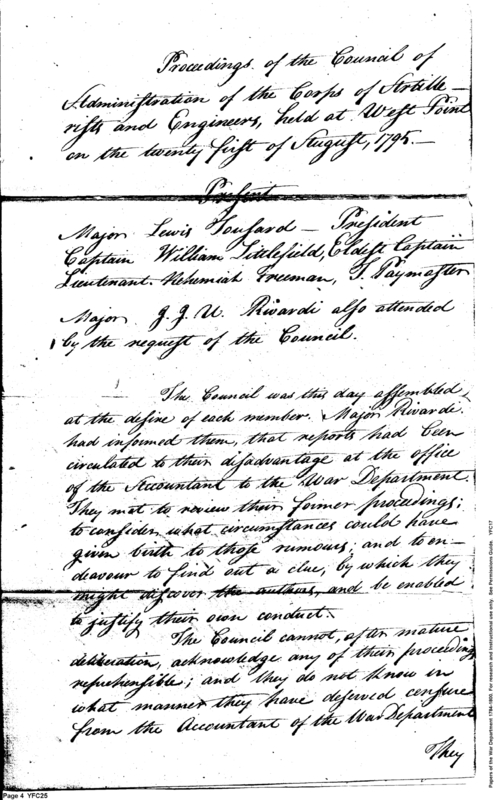 Proceedings of the Council of
Administration of the Corps of Artille-
rists and Engineers, held at West Point
on the twenty first of August, 1795.—
Present
Major Lewis Tousard — President
Captain William Littlefield, Eldest Captain
Lieutenant Nehemiah Freeman, Paymaster
Major J. J. U. Rivardi also attended
by the request of the Council.
The Council was this day assembled
at the desire of each member. Major Rivardi
had informed them, that reports had been
circulated to their disadvantage at the office
of the Accountant to the War Department.
They met to review their former proceedings;
to consider what circumstances could have
given birth to those rumours; and to en-
deavour to find out a clue, by which they
might discover the authors, and be enabled
to justify their own conduct.
The Council cannot, after mature
deliberation, acknowledge any of their proceedings
reprehensible; and they do not know in
what manner they have deserved censure
from the Accountant of the War Department
They
Page 4 YFC25
Papers of the War Department 1784-1800. For research and instructional use only. See Permissions Guide. YFC17